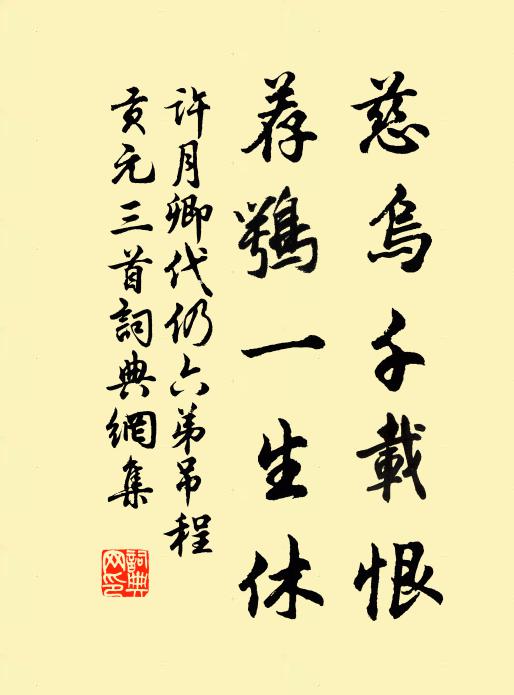 慈烏千載恨
荐鶚一生休
许月卿代仍六弟吊程
贡元三首詞典網集
詞典网印